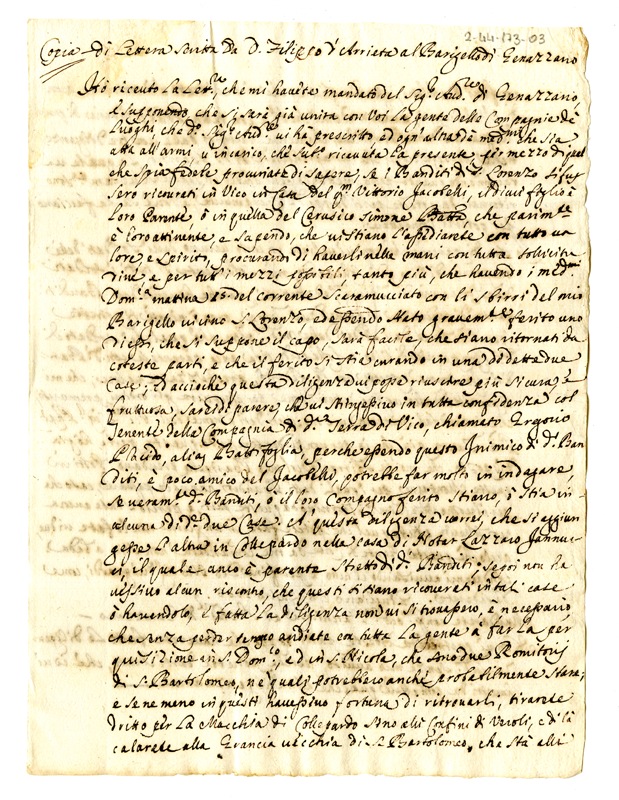 2-44-173-03
Copia di Lettera scritta da D. Filippo d'Arrieta al Barigello di Genazzano
Hò riceuto La Lett.ra, che mi havete mandato del Sig.r Aud.re di Genazzano,
e supponendo, che si sarà già unita con Voi La gente delle Compagnie de
Luoghi, che d.o Sig.r Aud.re vi hà prescritto ed ogn'altra de med.mi che sia
atta all'armi v'incarico, che sub.o riceuuta La presente per mezzo di qual
che spia fedele procuriate di sapere, se i Banditi di S. Lorenzo si fus
sero ricourati in Vico in Casa del q.m Vittorio Jacobelli, il di cui figlio è
Loro Parente ò in quella del Cerusico Simone che parim.te
è loro attinente, e sapendo, che vi stiano L'assediarete con tutto va
lore, e spirito, procurando di haverli nelle mani con tutta sollecitu
dine e per tutt'i mezzi possibili tanto più, che havendo i med.mi
Dom.ca mattina 15 del corrente scaramucciato con li sbirri del mio
Barigello vicino S. Lorenzo, ed essendo stato gravem.te ferito uno
di essi, che si suppone il capo, sarà facile, che siano ritornati da
coteste parti, e che il ferito si stia curando in una di dette due
Case; Ed accioche questa diligenza vi possa riuscire più sicura, e
fruttuosa, sarei di parere, che vi stringessivo in tutta confidenza col
Tenente della Compagnia di d.a Terra di Vico, chiamato Gregorio
Placido, alias Battifoglia, perche essendo questo Inimico di d.i Ban
diti, e poco amico del Jacobelli, potrebbe far molto in indagare,
se veram.te d.i Banditi, ò il loro Compagno ferito stiano, ò stia in
alcuna di d.e due Case. e à questa diligenza vorrei, che si aggiun
gesse L'altra in Collepardo nella casa di Notar Lazzaro Jannuc
ci, il quale anco è parente stretto di d.i Banditi: se poi non ha
vessivo alcun riscontro, che questi si siano ricouerati in tali case
ò havendolo, e fatta La diligenza non vi si trovassero, è necessario,
che senza perder tempo andiate con tutta La gente à far La per
quisizione in S. Dom.co, ed in S. Nicola, che sono due Romitorij
di S. Bartolomeo, ne' quali potrebbero anche probabilmente stare;
e se ne meno in questi havessivo fortuna di ritrovarli, tirarete
dritto per La Macchia di Collepardo sino alli Confini di Veroli, e di là
calarete alla Grancia vecchia di S. Bartolomeo, che stà alli